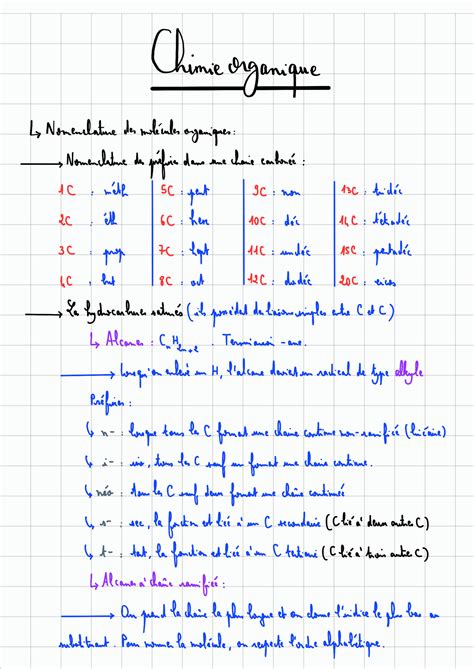 Chimie organique
↳ Nomenclature des molécules organiques :
→ Nomenclature des préfixes dans une chaîne carbonée :
1C : méth 5C : pent 9C : non 13C : tridéc
2C : éth 6C : hex 10C : déc 14C : tétradéc
3C : prop 7C : hept 11C : undéc 15C : pentadéc
4C : but 8C : oct 12C : dodéc 20C : eicos
→ Les hydrocarbures saturés (ils possèdent des liaisons simples entre C et C)
↳ Alcanes : CnH2n+2 . Terminaison -ane.
→ Lorsqu'on enlève un H, l'alcane devient un radical de type alkyle
Préfixes :
↳ n- : lorsque tous les C forment une chaîne continue non-ramifiée (linéaire)
↳ i- : iso, tous les C sauf un forment une chaîne continue.
↳ néo : tous les C sauf deux forment une chaîne continue
↳ s- : sec, la fonction est liée à un C secondaire (C lié à deux autres C)
↳ t- : tert, la fonction est liée à un C tertiaire (C lié à trois autres C)
↳ Alcanes à chaîne ramifiée :
→ On prend la chaîne la plus longue et on donne l'indice le plus bas au
substituant. Pour nommer la molécule, on respecte l'ordre alphabétique.